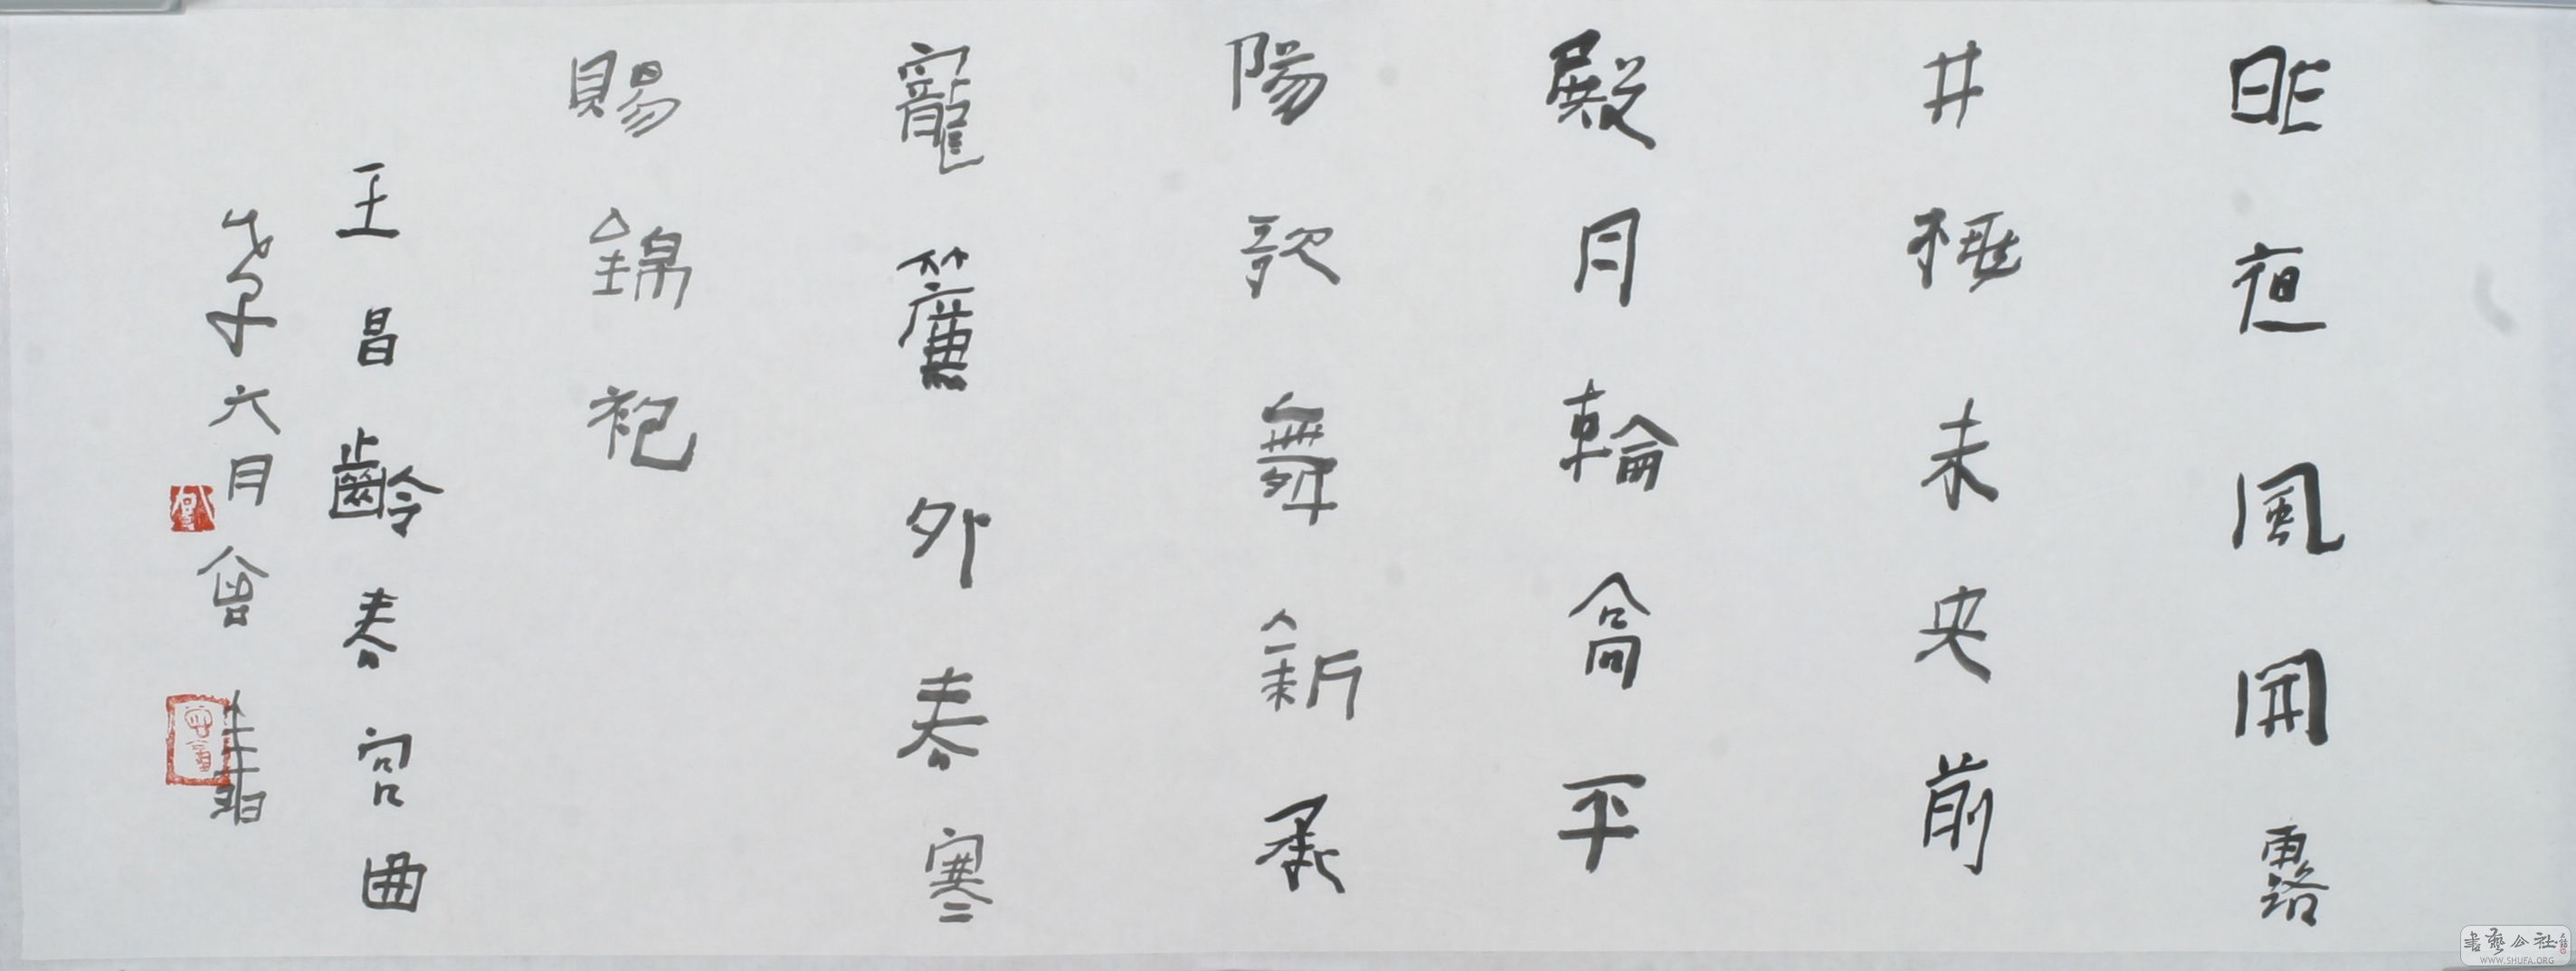 昨夜風開露
井桃未央前
殿月輪高平
陽歌舞新承
寵簾外春寒
賜錦袍
王昌齡春宮曲
戊子六月曾翔
書藝公社
WWW.SHUFA.ORG